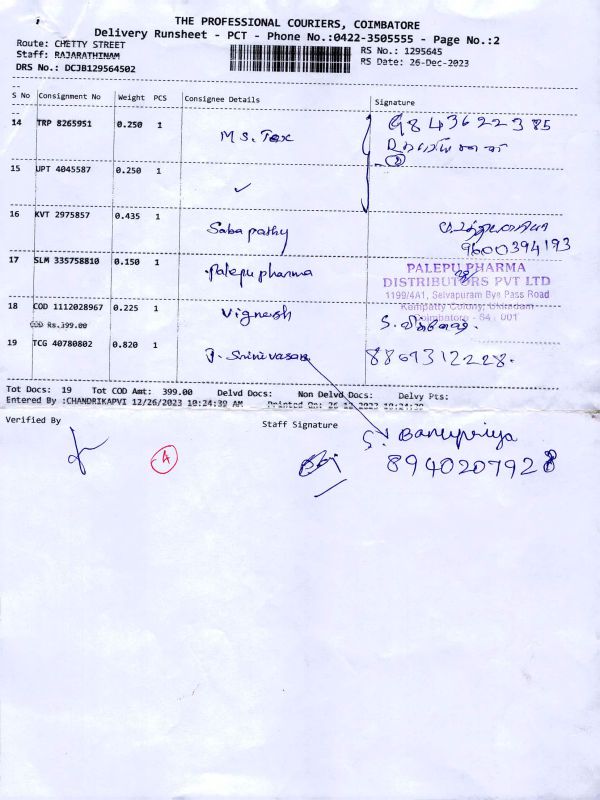 THE PROFESSIONAL COURIERS, COIMBATORE
Delivery Runsheet - PCT - Phone No.:0422-3505555 - Page No.:2
Route: CHETTY STREET
Staff: RAJARATHINAM
DRS No.: DCJB129564502
RS No.: 1295645
RS Date: 26-Dec-2023
S No Consignment No Weight PCS Consignee Details Signature
14 TRP 8265951 0.250 1 M S. Tex 9843622385
15 UPT 4045587 0.250 1 ✓
16 KVT 2975857 0.435 1 Sabapathy
9600394193
17 SLM 335758810 0.150 1 Palepu pharma
PALEPU PHARMA
DISTRIBUTORS PVT LTD
1199/4A1, Selvapuram Bye Pass Road
Coimbatore - 641 001
18 COD 1112028967 0.225 1 Vignesh
COD Rs.399.00
19 TCG 40780802 0.820 1 J. Srinivasan
Tot Docs: 19 Tot COD Amt: 399.00 Delvd Docs: Non Delvd Docs: Delvy Pts:
Entered By :CHANDRIKAPVI 12/26/2023 10:24:39 AM Printed On: 26-12-2023 10:24:39
Verified By
Staff Signature
Banupriya
4